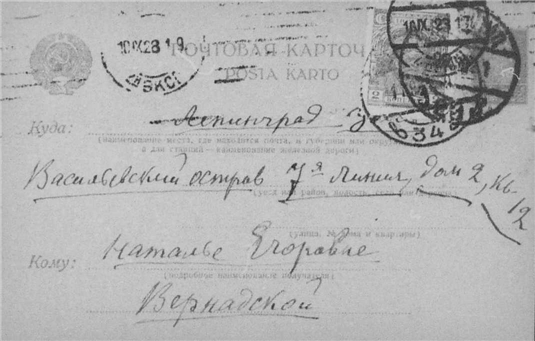 ПОЧТОВАЯ КАРТОЧКА
POSTA KARTO
Куда: Ленинград
(наименование места, где находится почта, и губернии или округа,
а для станций — наименование железной дороги)
Васильевский остров 7я линия, дом 2, кв. 12
(улица, № дома и квартиры)
Кому: Наталье Егоровне
(подробное наименование получателя)
Вернадской